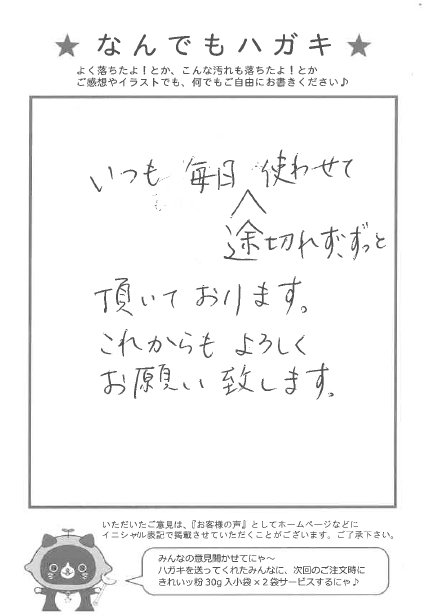 ★ なんでもハガキ ★
よく落ちたよ！とか、こんな汚れも落ちたよ！とか
ご感想やイラストでも、何でもご自由にお書きください♪
いつも 毎日 使わせて
途切れず、ずっと
頂いております。
これからも よろしく
お願い致します。
いただいたご意見は、『お客様の声』としてホームページなどに
イニシャル表記で掲載させていただくことがございます。ご了承下さい。
みんなの意見聞かせてにゃ～
ハガキを送ってくれたみんなに、次回のご注文時に
きれいッ粉 30g 入小袋 × 2 袋サービスするにゃ♪